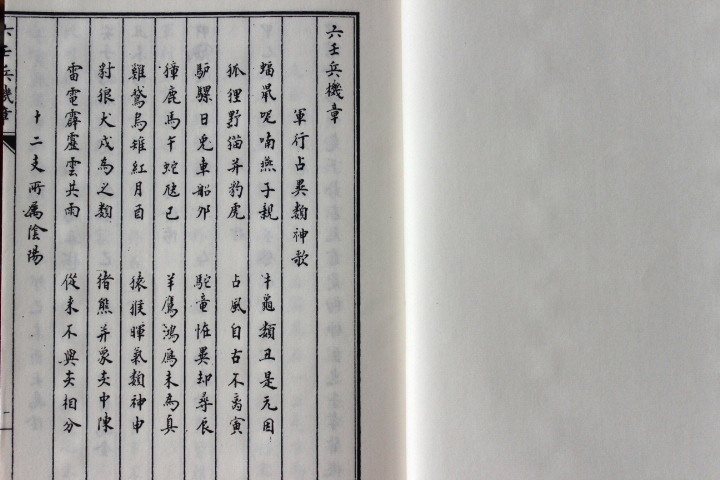 六壬兵機章
軍行占異類神歌
蝠鼠呢喃燕子親 牛龜類丑是元因
狐狸野猫并豹虎 占風自古不离寅
驴騾日兎車船卯 駝竜怪異却尋辰
獐鹿馬午蛇 巳 羊鷹鴻鴈未為真
雞鵞烏雉紅月酉 猿猴暉氣類神申
豺狼犬戌為之類 猪熊并象亥中陳
雷電霹靂雲共雨 從来不與亥相分
十二支所属陰陽
六壬兵機章